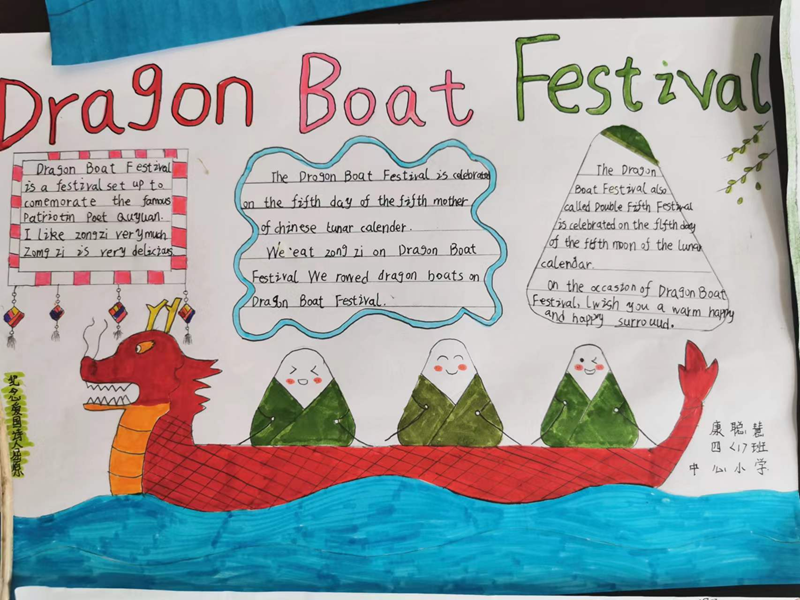 Dragon Boat Festival
Dragon Boat Festival
is a festival set up to
comemorate the famous
Patriotin Poet Quyuan.
I like zongzi very much
Zong zi is very delictars
The Dragon Boat Festival is celebrated
on the fifth day of the fifth mother
of chinese lunar calender.
We eat zong zi on Dragon Boat
Festival We rowed dragon boats on
Dragon Boat Festival.
The Dragon
Boat Festival also
called Double Fifth Festival
is celebrated on the fifth day
of the fifth moon of the lunar
calendar.
On the occasion of Dragon Boat
Festival, I wish you a warm happy
and happy surrouud.
纪念爱国诗人屈原
康聪慧
四〈1〉班
中心小学